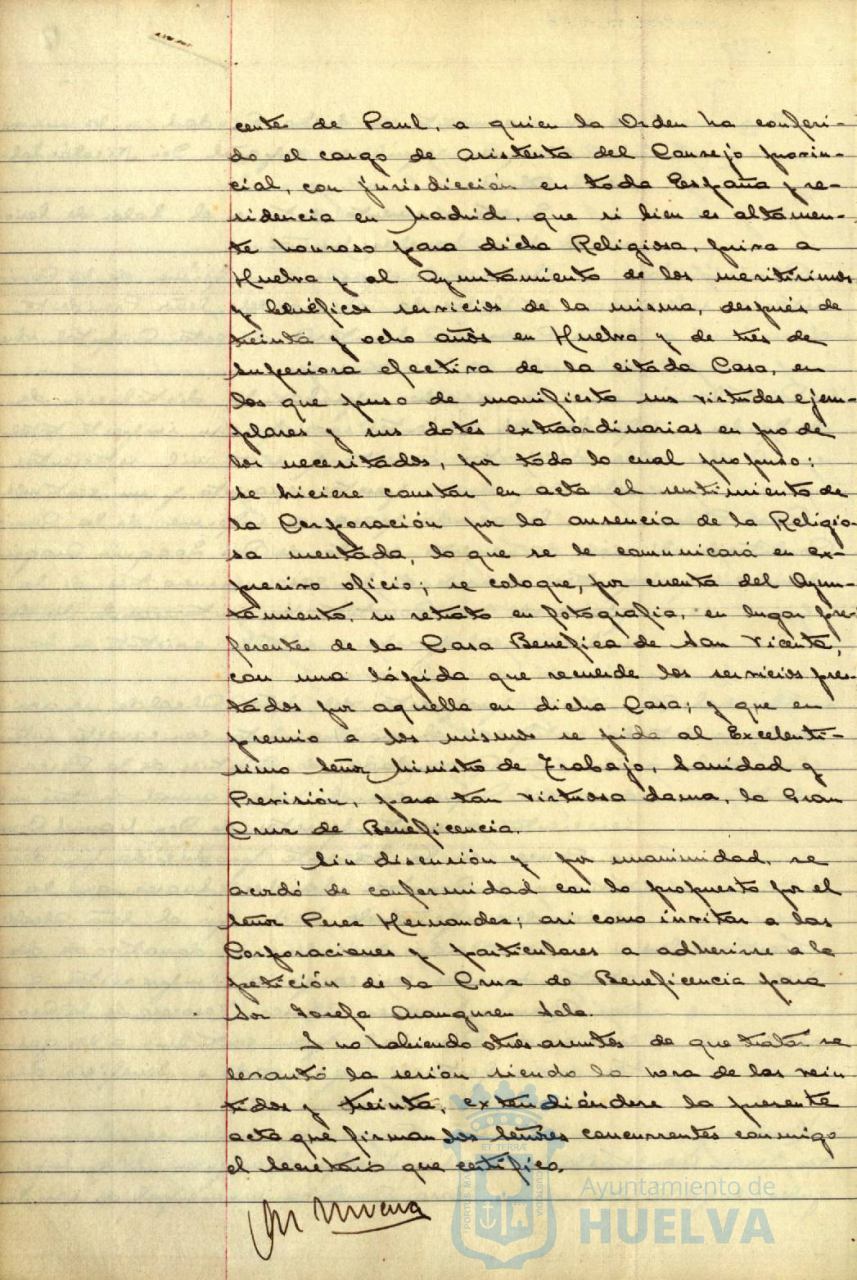 cente de Paul, a quien la Orden ha conferi-
do el cargo de Asistenta del Consejo provin-
cial, con jurisdicción en toda España y re-
sidencia en Madrid, que si bien es altamen-
te honroso para dicha Religiosa, priva a
Huelva y al Ayuntamiento de los meritísimos
y benéficos servicios de la misma, después de
treinta y ocho años en Huelva y de tres de
Superiora efectiva de la citada Casa, en
los que puso de manifiesto sus virtudes ejem-
plares y sus dotes extraordinarias en pro de
los necesitados, por todo lo cual propuso:
se hiciere constar en acta el sentimiento de
la Corporación por la ausencia de la Religio-
sa mentada, lo que se le comunicará en ex-
presivo oficio; se coloque, por cuenta del Ayun-
tamiento, su retrato en fotografía, en lugar pre-
ferente de la Casa Benéfica de San Vicente,
con una lápida que recuerde los servicios pres-
tados por aquella en dicha Casa; y que en
premio a los mismos se pida al Excelentí-
simo Señor Ministro de Trabajo, Sanidad y
Previsión, para tan virtuosa dama, la Gran
Cruz de Beneficencia.
Sin discusión y por unanimidad, se
acordó de conformidad con lo propuesto por el
Señor Perez Hernandez; asi como invitar a las
Corporaciones y particulares a adherirse a la
petición de la Cruz de Beneficencia para
Sor Josefa Aranguren Sola.
Y no habiendo otros asuntos de que tratar se
levantó la sesión siendo la hora de las vein
tidos y treinta, extendiéndose la presente
acta que firman los Señores concurrentes conmigo
el Secretario que certifico.
Ayuntamiento de
HUELVA